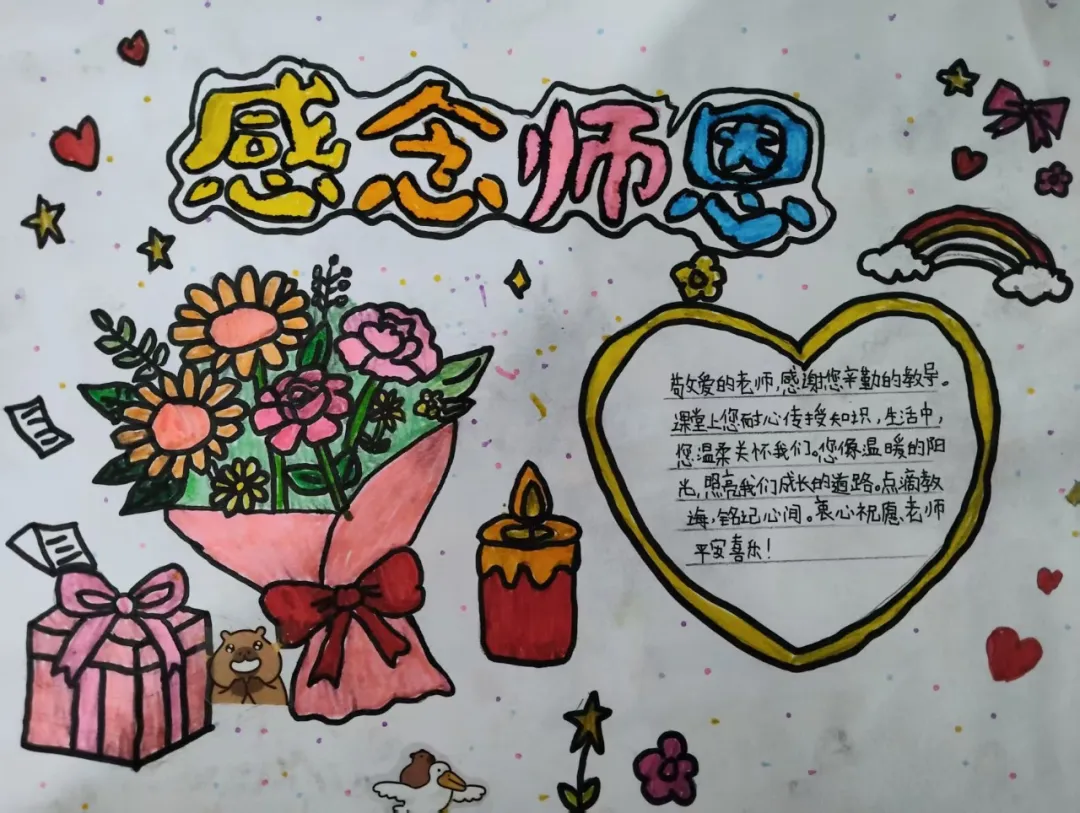 感念师恩
敬爱的老师,感谢您辛勤的教导。
课堂上您耐心传授知识,生活中,
您温柔关怀我们。您像温暖的阳
光,照亮我们成长的道路。点滴教
诲,铭记心间。衷心祝愿老师
平安喜乐!